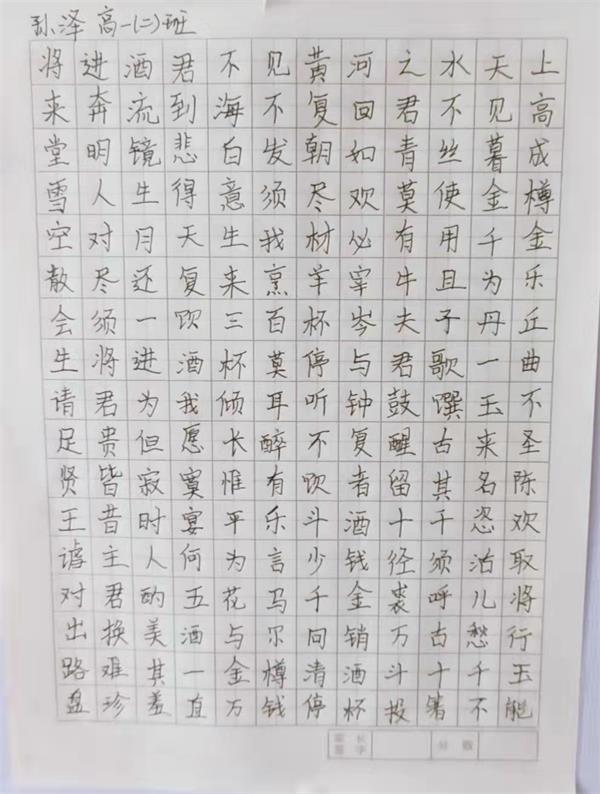 孙泽 高一(二)班
将进酒君不见黄河之水天上
来奔流到海不复回君不见高
堂明镜悲白发朝如青丝暮成
雪人生得意须尽欢莫使金樽
空对月天生我材必有用千金
散尽还复来烹羊宰牛且为乐
会须一饮三百杯岑夫子丹丘
生将进酒杯莫停与君歌一曲
请君为我倾耳听钟鼓馔玉不
足贵但愿长醉不复醒古来圣
贤皆寂寞惟有饮者留其名陈
王昔时宴平乐斗酒十千恣欢
谑主人何为言少钱径须沽取
对君酌五花马千金裘呼儿将
出换美酒与尔同销万古愁行
路难其一金樽清酒斗十千玉
盘珍羞直万钱停杯投箸不能
家长签字 分数